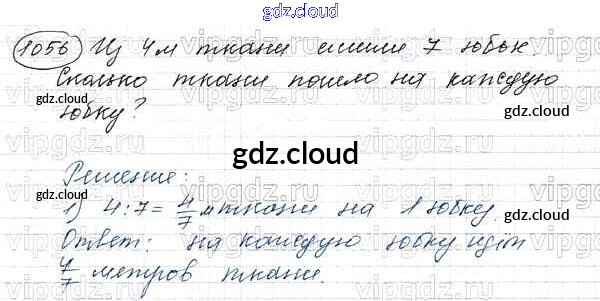 gdz.cloud
1056 Из 4 м ткани сшили 7 юбок.
Сколько ткани пошло на каждую
юбку?
gdz.cloud
gdz.cloud
gdz.cloud
gdz.cloud
Решение:
1) 4:7= 4/7 м ткани на 1 юбку.
gdz.cloud
gdz.cloud
Ответ: на каждую юбку идёт
4/7 метров ткани.